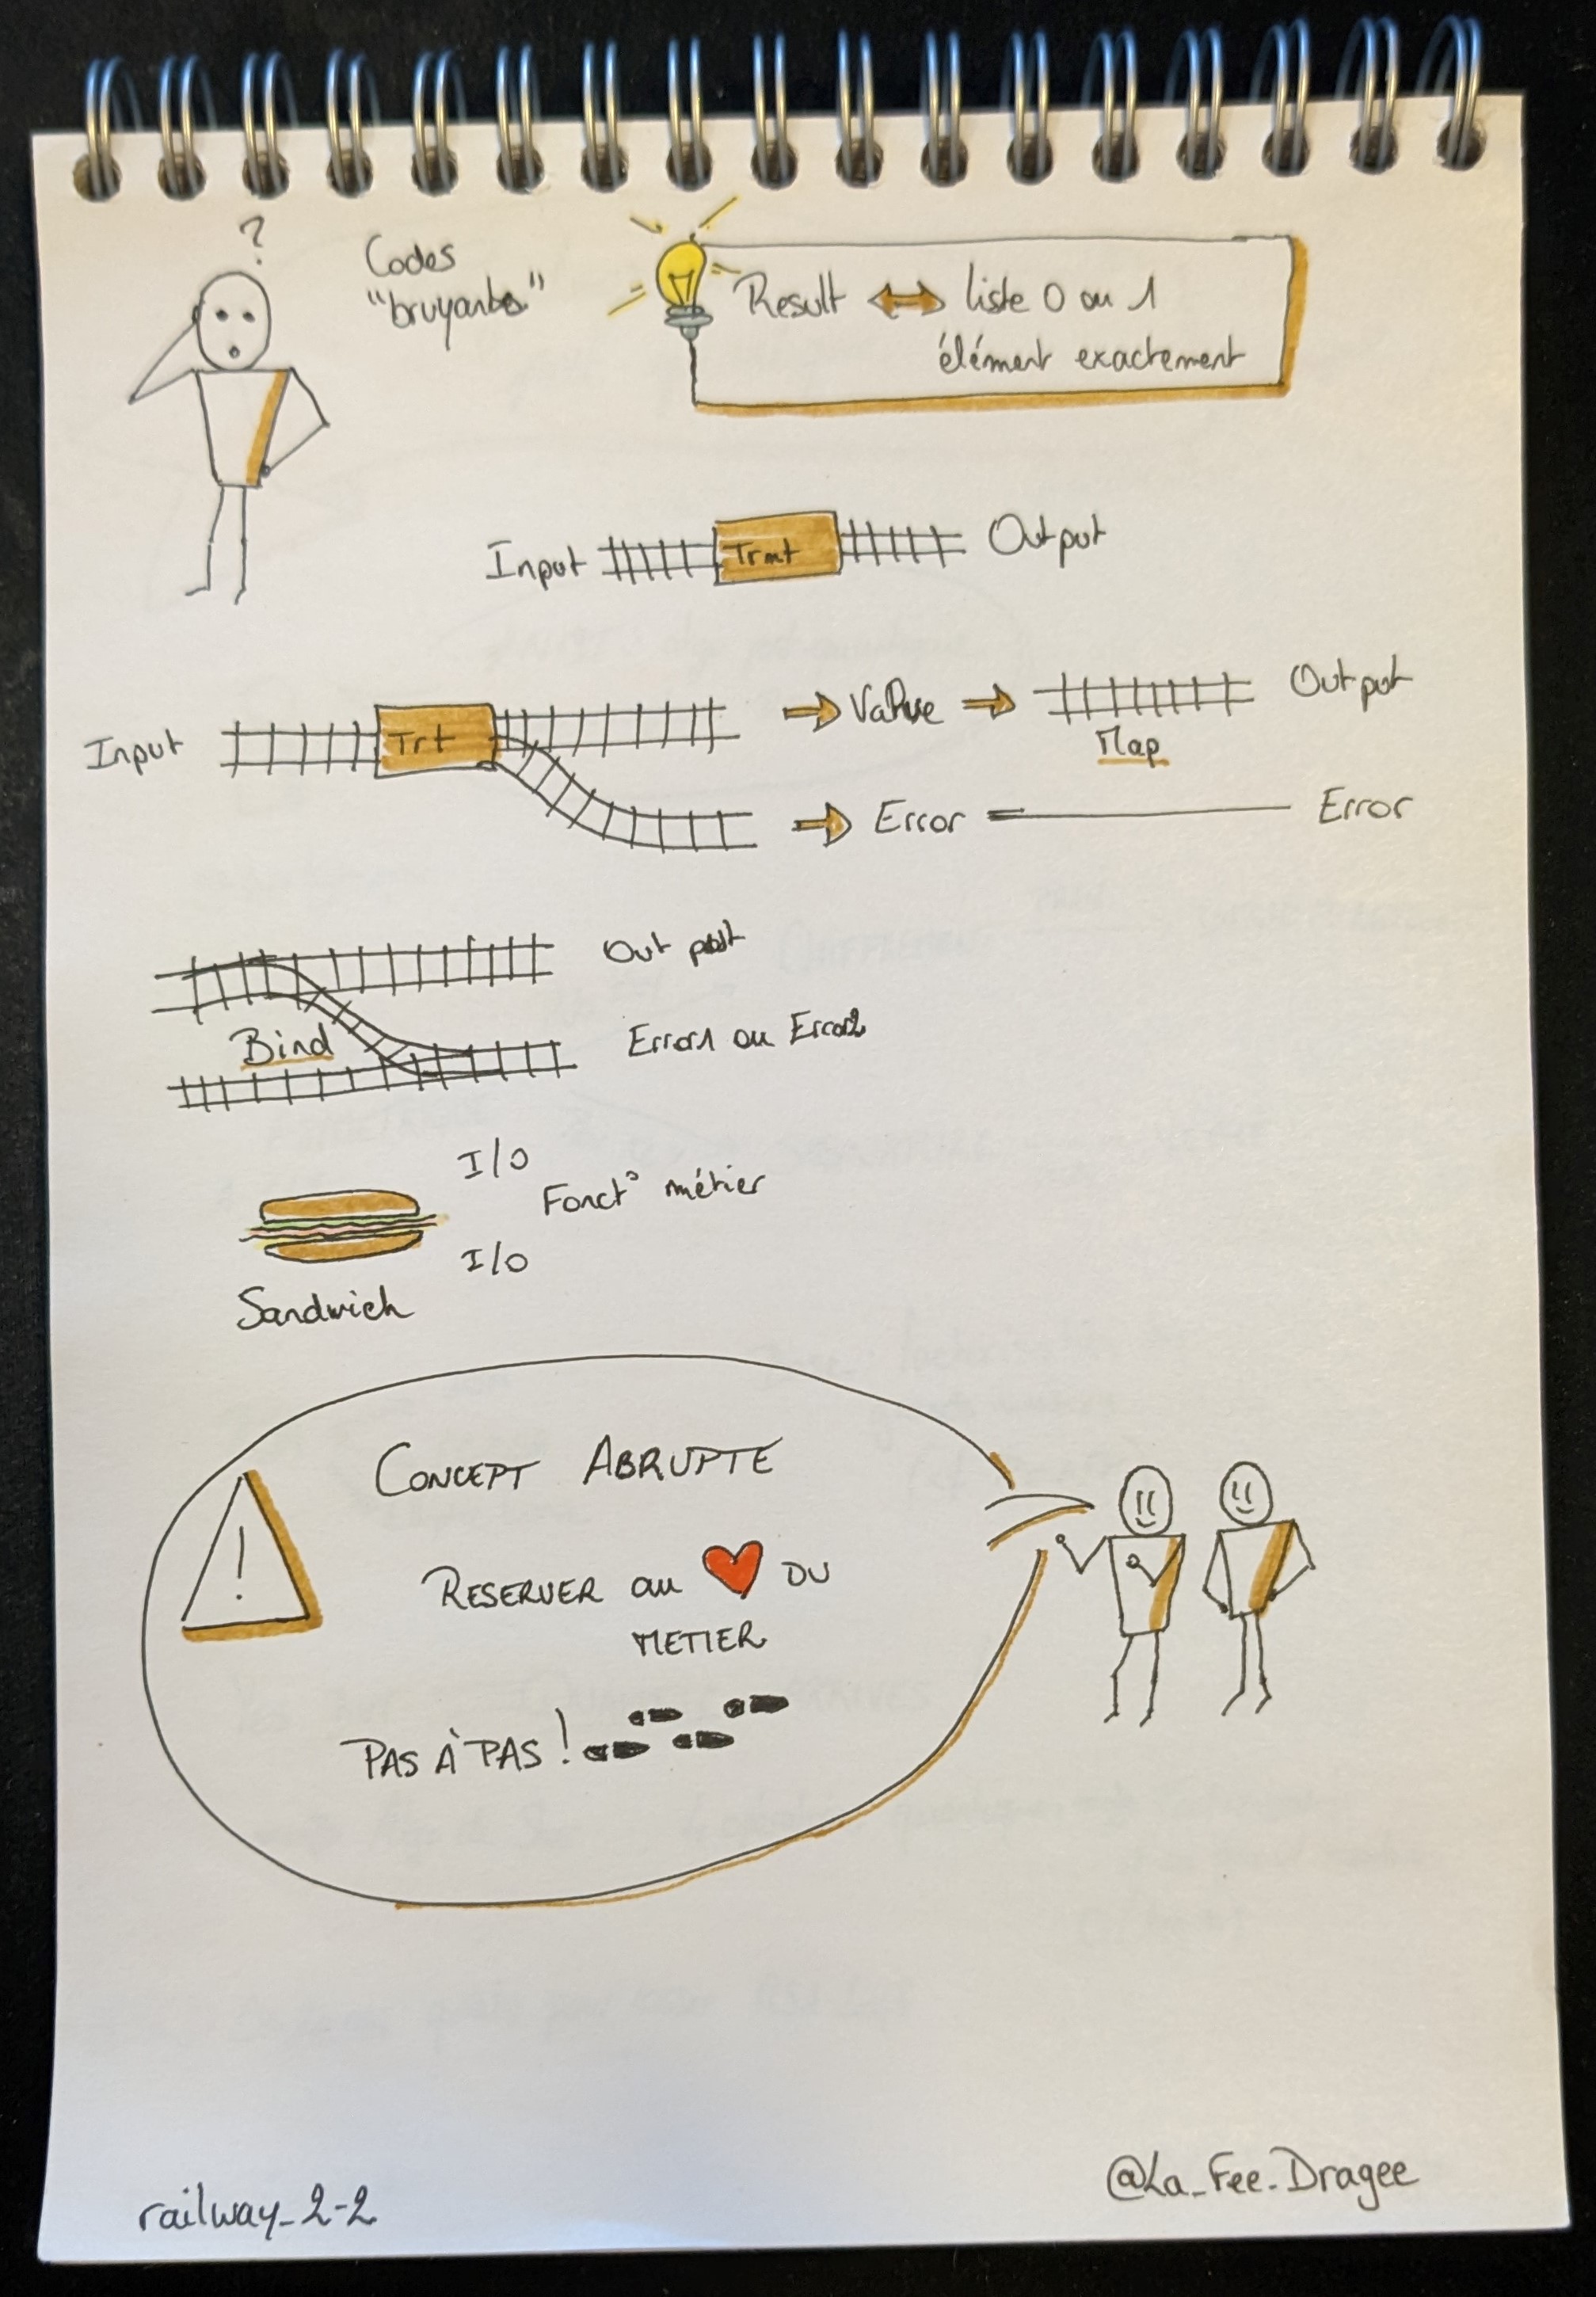 ?
Codes
"bruyants"
Result ⇔ liste 0 ou 1
élément exactement
Input Trmt Output
Input Trt → Value → Map Output
→ Error Error
Output
Bind
Error1 ou Error2
I/O
Fonct° métier
I/O
Sandwich
CONCEPT ABRUPTE
!
RESERVER au ❤ DU
METIER
PAS À PAS !
railway_2-2
@La_Fee_Dragee